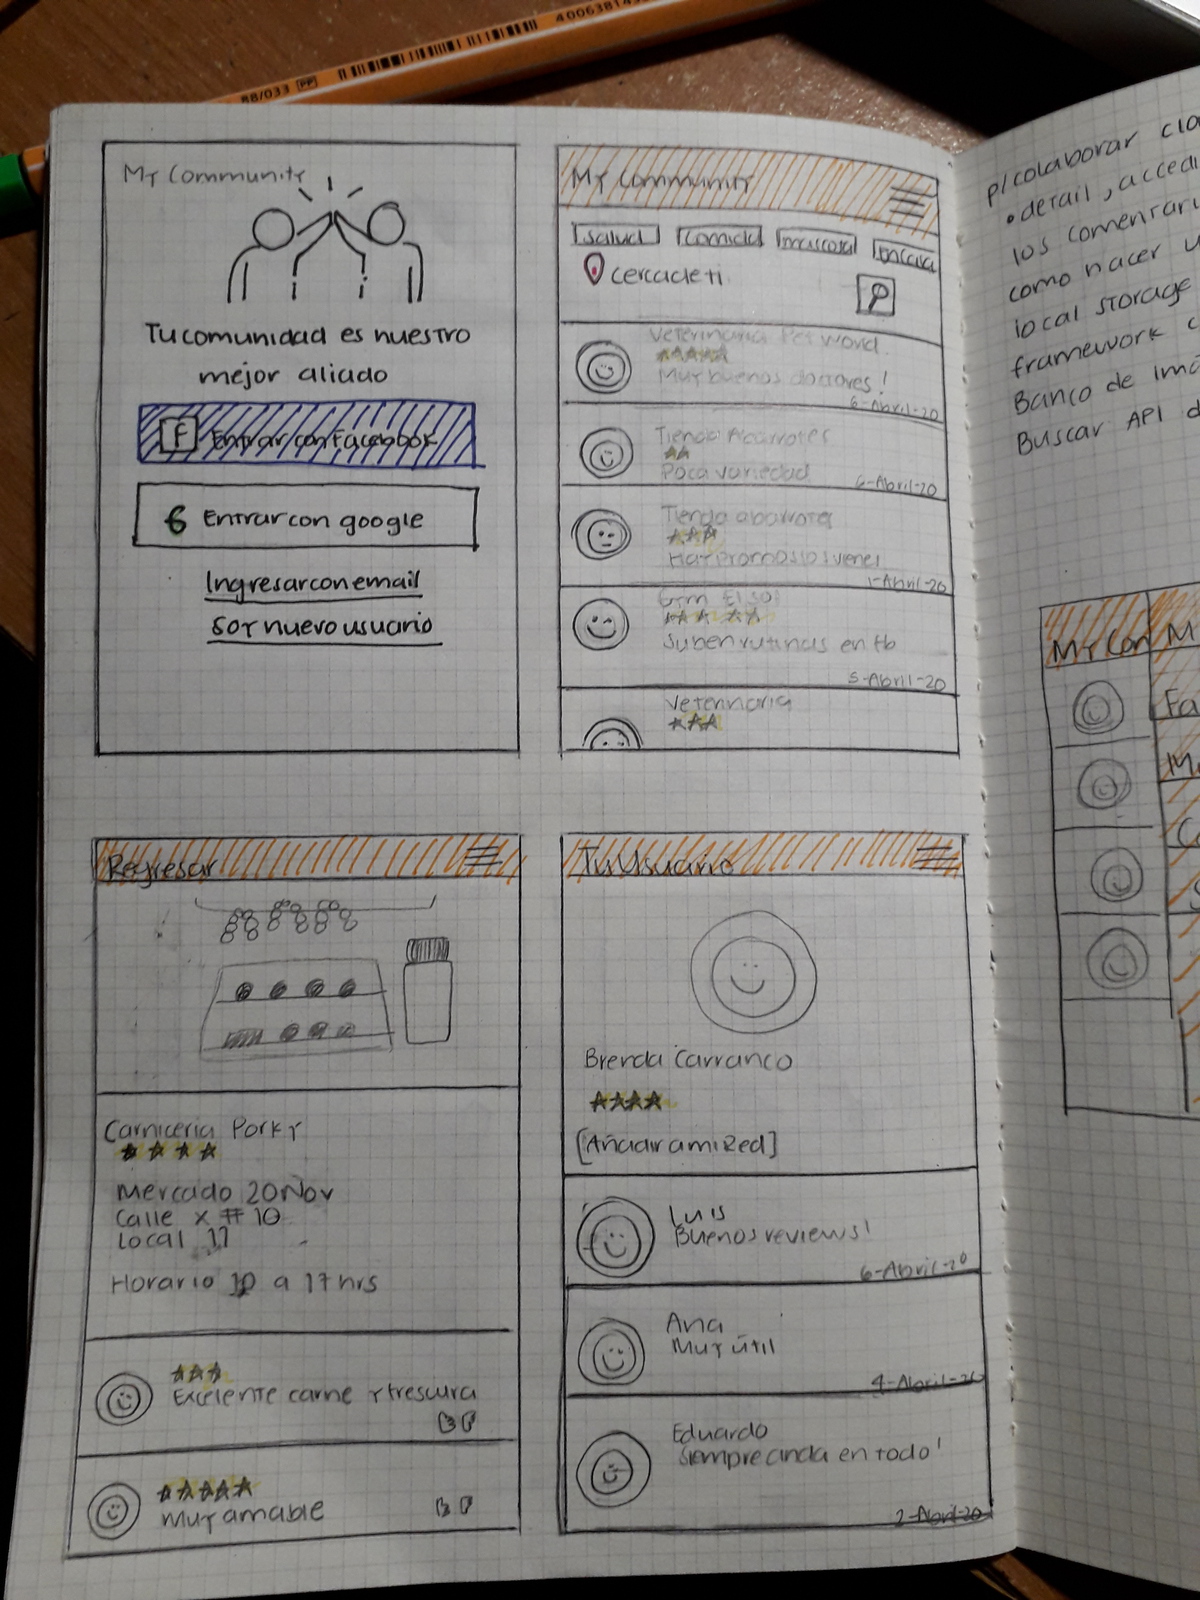 88/033 PP
My Community
Tu comunidad es nuestro
mejor aliado
F Entrar con Facebook
G Entrar con google
Ingresar con email
Soy nuevo usuario
My Community
salud comida mascota
cerca de ti
Veterinaria Pet World
Muy buenos doctores!
6-Abril-20
Tienda Abarrotes
Poca variedad
6-Abril-20
Tienda abarrotes
Hay promos los vienes
1-Abril-20
Gym El Sol
Suben rutinas en fb
5-Abril-20
Veterinaria
Regresar
Carnicería Porky
Mercado 20 Nov
Calle x # 10
Local 17
Horario 10 a 17 hrs
Excelente carne y frescura
Muy amable
Tu Usuario
Brenda Carranco
[Añadir a mi Red]
Luis
Buenos reviews!
6-Abril-20
Ana
Muy útil
4-Abril-20
Eduardo
Siempre anda en todo!
2-Abril-20
p/colaborar
•detail, acced
los comentari
como hacer
local storage
framework
Banco de imá
Buscar API d
My Con M
Fa
M
C